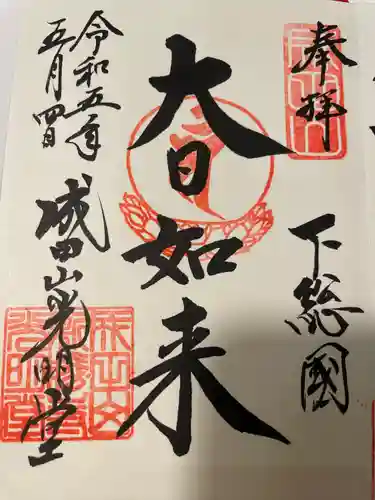 奉拝
下総國
大日如来
成田山光明堂
令和五年
五月四日